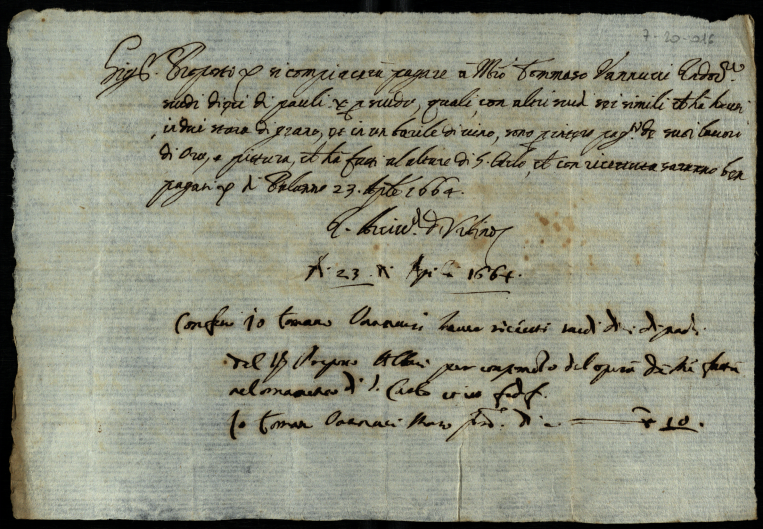 7-20-016
Sig.r Proposto si compiacerà pagare à Mro Tommaso Vannucci Indor.re
scudi dieci di pauli X p scudo, quali, con altri scudi sei simili et ha havuti
in due stara di grano, et in un barile di vino, sono p intero pag.to de suoi lavori
di Oro, e pittura, et ha fatti al altare di S. Carlo, et con ricevuta saranno ben
pagati Di Palazzo 23. Aple 1664.
L. di Urbino
A di 23 di Aple 1664.
Confesso Io Tomaso Vannucci havere riceuuti scudi dieci di paoli
del Sig Proposto Albani per compimento del opera da me fatta
nel ornamento di S. Carlo et in fede
Io Tomaso Vannucci mano pro. di 10.